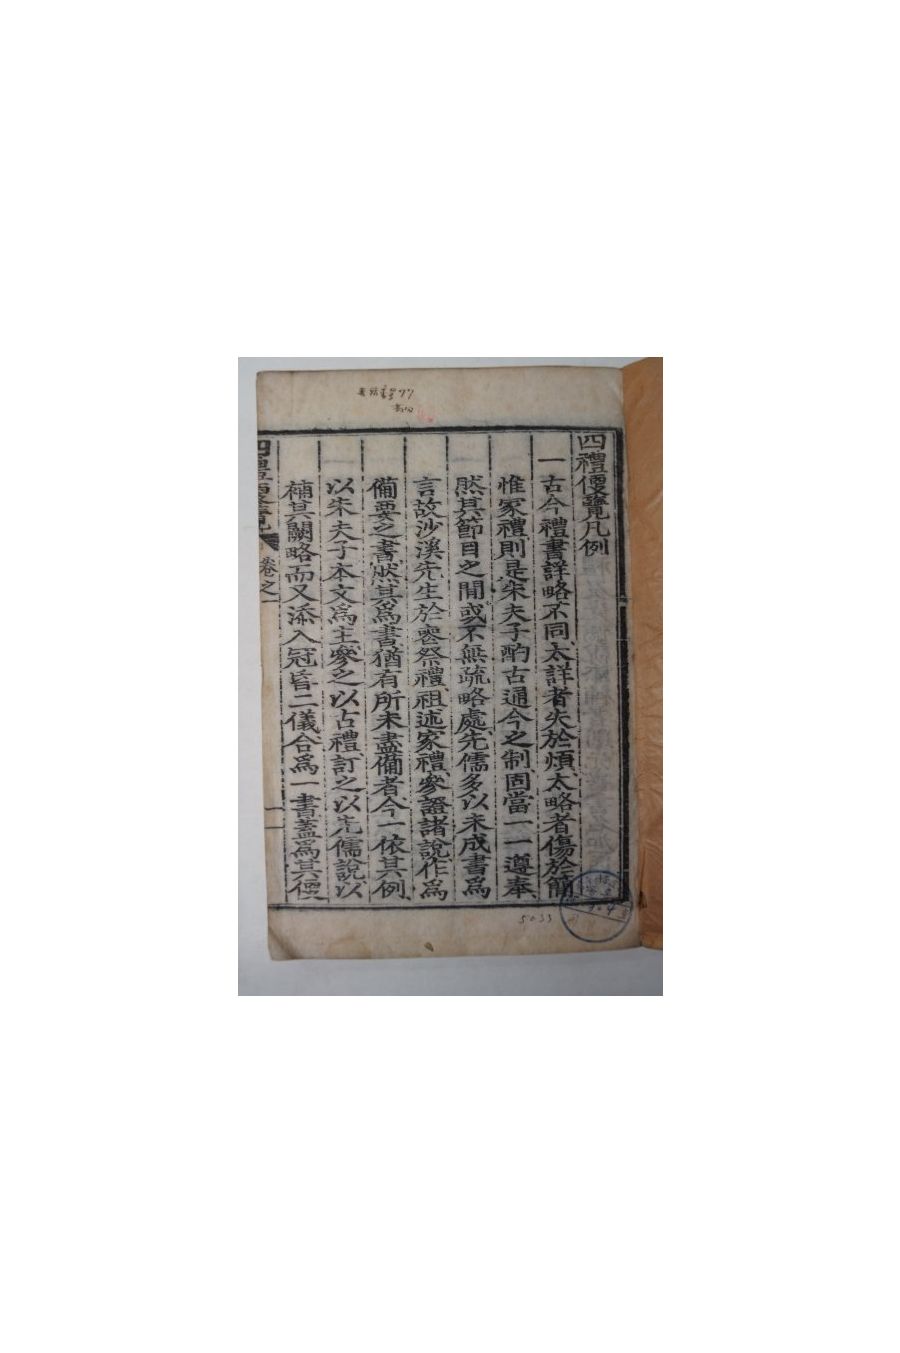 四禮便覽凡例
一古今禮書詳略不同太詳者失於煩太略者傷於簡
惟家禮則是朱夫子酌古通今之制固當一一遵奉
然其節目之間或不無疏略處先儒多以未成書爲
言故沙溪先生於喪祭禮祖述家禮參證諸說作爲
備要之書然其爲書猶有所未盡備者今一依其例
以朱夫子本文爲主參之以古禮訂之以先儒說以
補其闕略而又添入冠昏二儀合爲一書蓋爲其便
四禮便覽 卷之一
5033